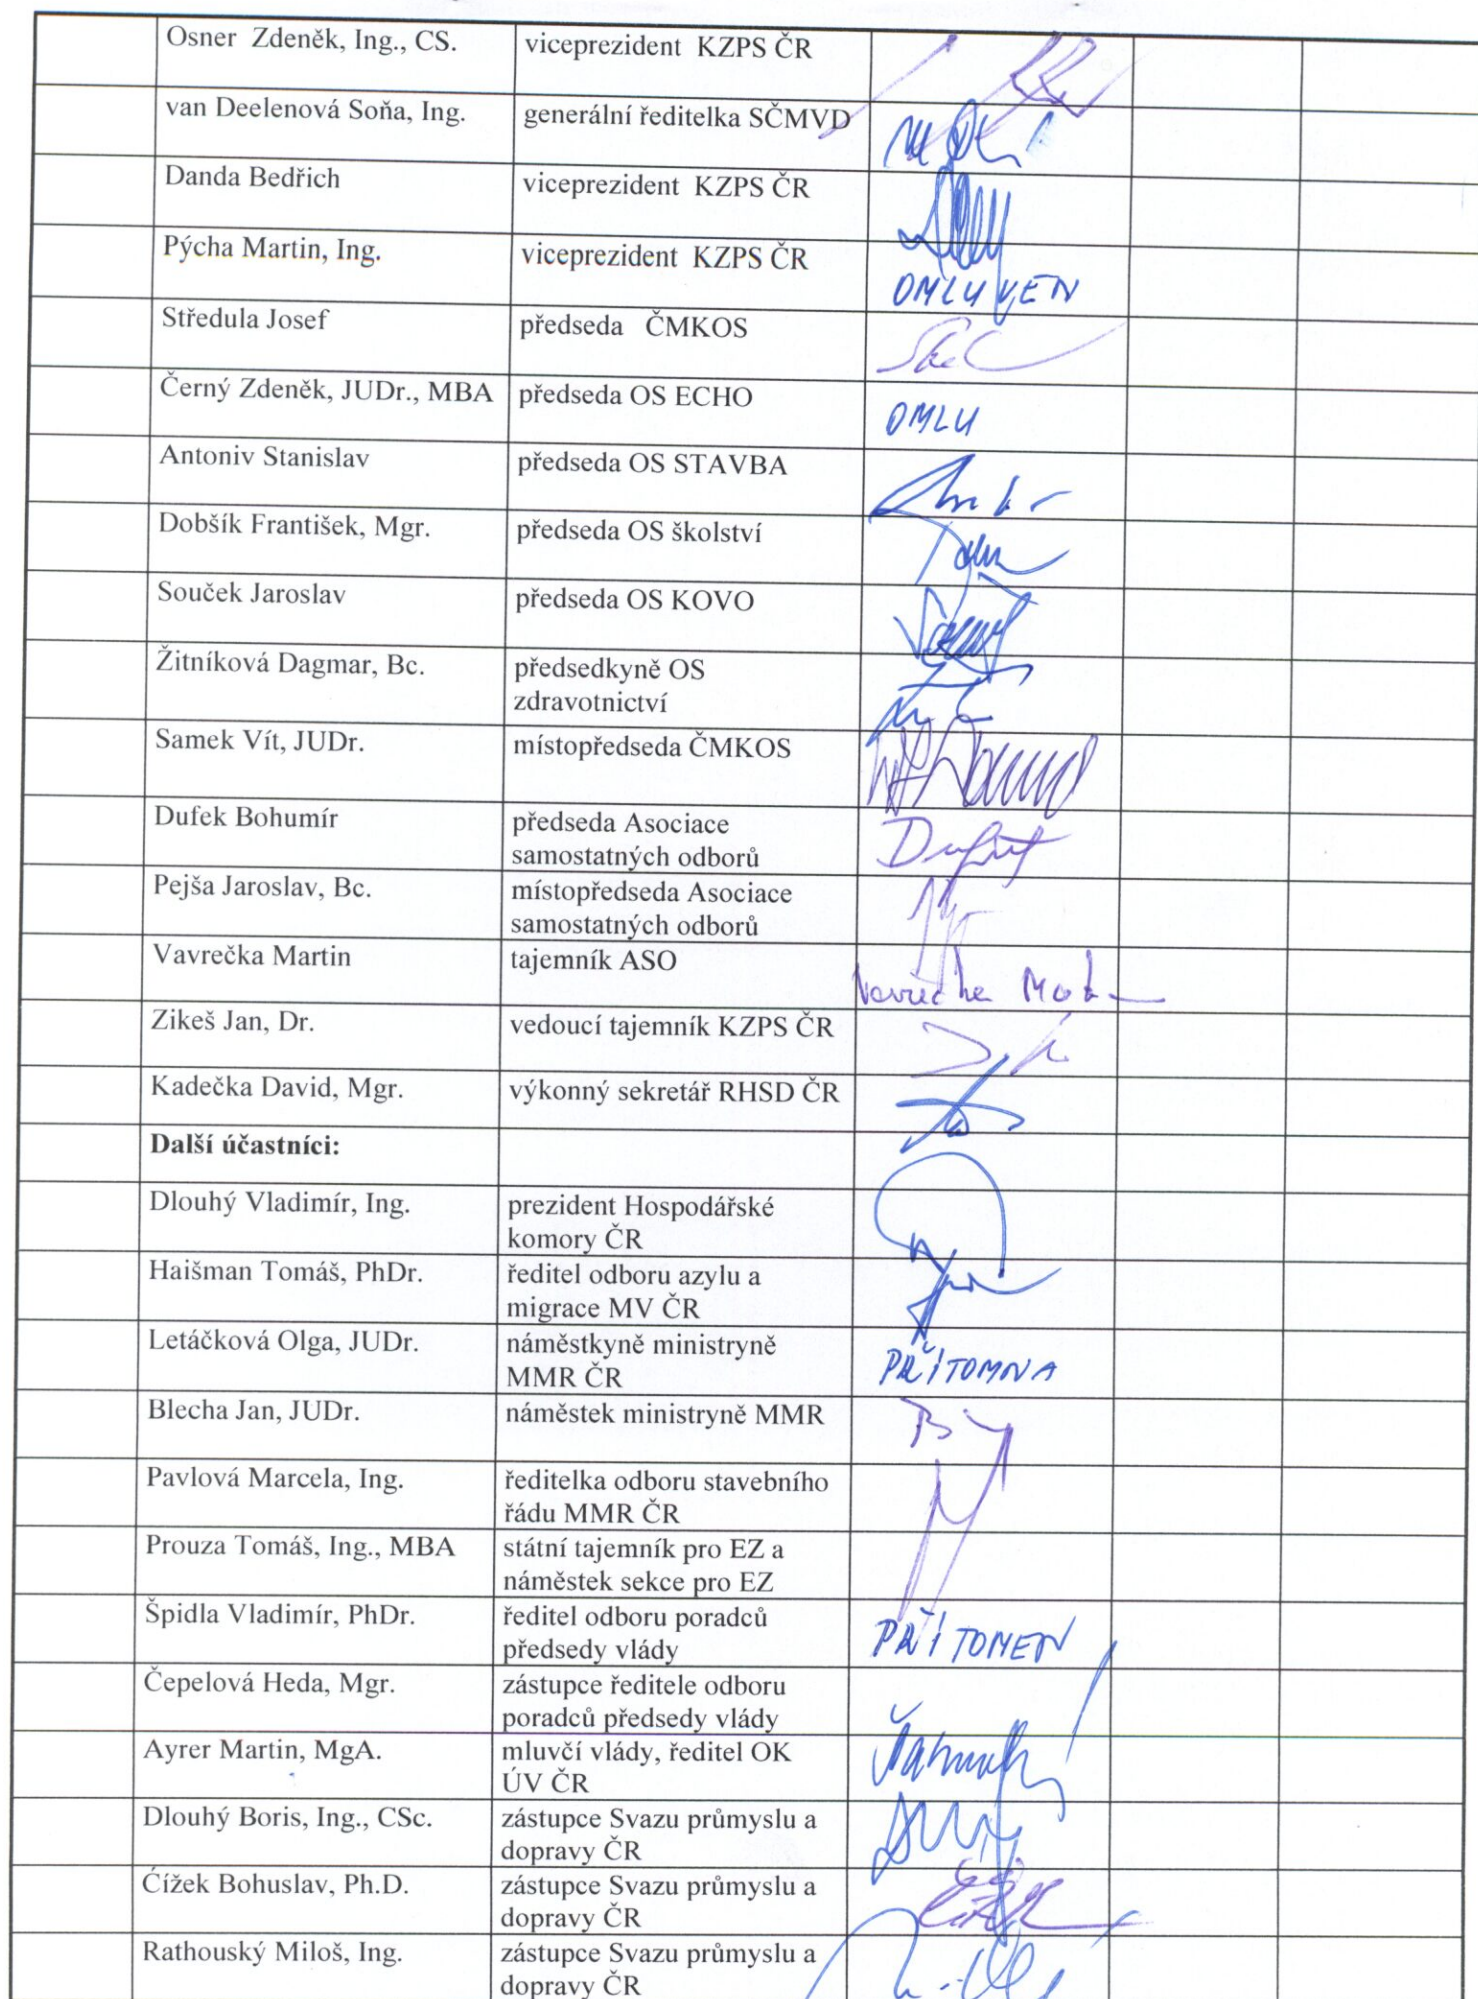 Osner Zdeněk, Ing., CS. viceprezident KZPS ČR
van Deelenová Soňa, Ing. generální ředitelka SČMVD
Danda Bedřich viceprezident KZPS ČR
Pýcha Martin, Ing. viceprezident KZPS ČR OMLUVEN
Středula Josef předseda ČMKOS
Černý Zdeněk, JUDr., MBA předseda OS ECHO OMLU
Antoniv Stanislav předseda OS STAVBA
Dobšík František, Mgr. předseda OS školství
Souček Jaroslav předseda OS KOVO
Žitníková Dagmar, Bc. předsedkyně OS
zdravotnictví
Samek Vít, JUDr. místopředseda ČMKOS
Dufek Bohumír předseda Asociace
samostatných odborů
Pejša Jaroslav, Bc. místopředseda Asociace
samostatných odborů
Vavrečka Martin tajemník ASO
Zikeš Jan, Dr. vedoucí tajemník KZPS ČR
Kadečka David, Mgr. výkonný sekretář RHSD ČR
Další účastníci:
Dlouhý Vladimír, Ing. prezident Hospodářské
komory ČR
Haišman Tomáš, PhDr. ředitel odboru azylu a
migrace MV ČR
Letáčková Olga, JUDr. náměstkyně ministryně
MMR ČR PŘÍTOMNA
Blecha Jan, JUDr. náměstek ministryně MMR
Pavlová Marcela, Ing. ředitelka odboru stavebního
řádu MMR ČR
Prouza Tomáš, Ing., MBA státní tajemník pro EZ a
náměstek sekce pro EZ
Špidla Vladimír, PhDr. ředitel odboru poradců
předsedy vlády PŘÍTOMEN
Čepelová Heda, Mgr. zástupce ředitele odboru
poradců předsedy vlády
Ayrer Martin, MgA. mluvčí vlády, ředitel OK
ÚV ČR
Dlouhý Boris, Ing., CSc. zástupce Svazu průmyslu a
dopravy ČR
Čížek Bohuslav, Ph.D. zástupce Svazu průmyslu a
dopravy ČR
Rathouský Miloš, Ing. zástupce Svazu průmyslu a
dopravy ČR